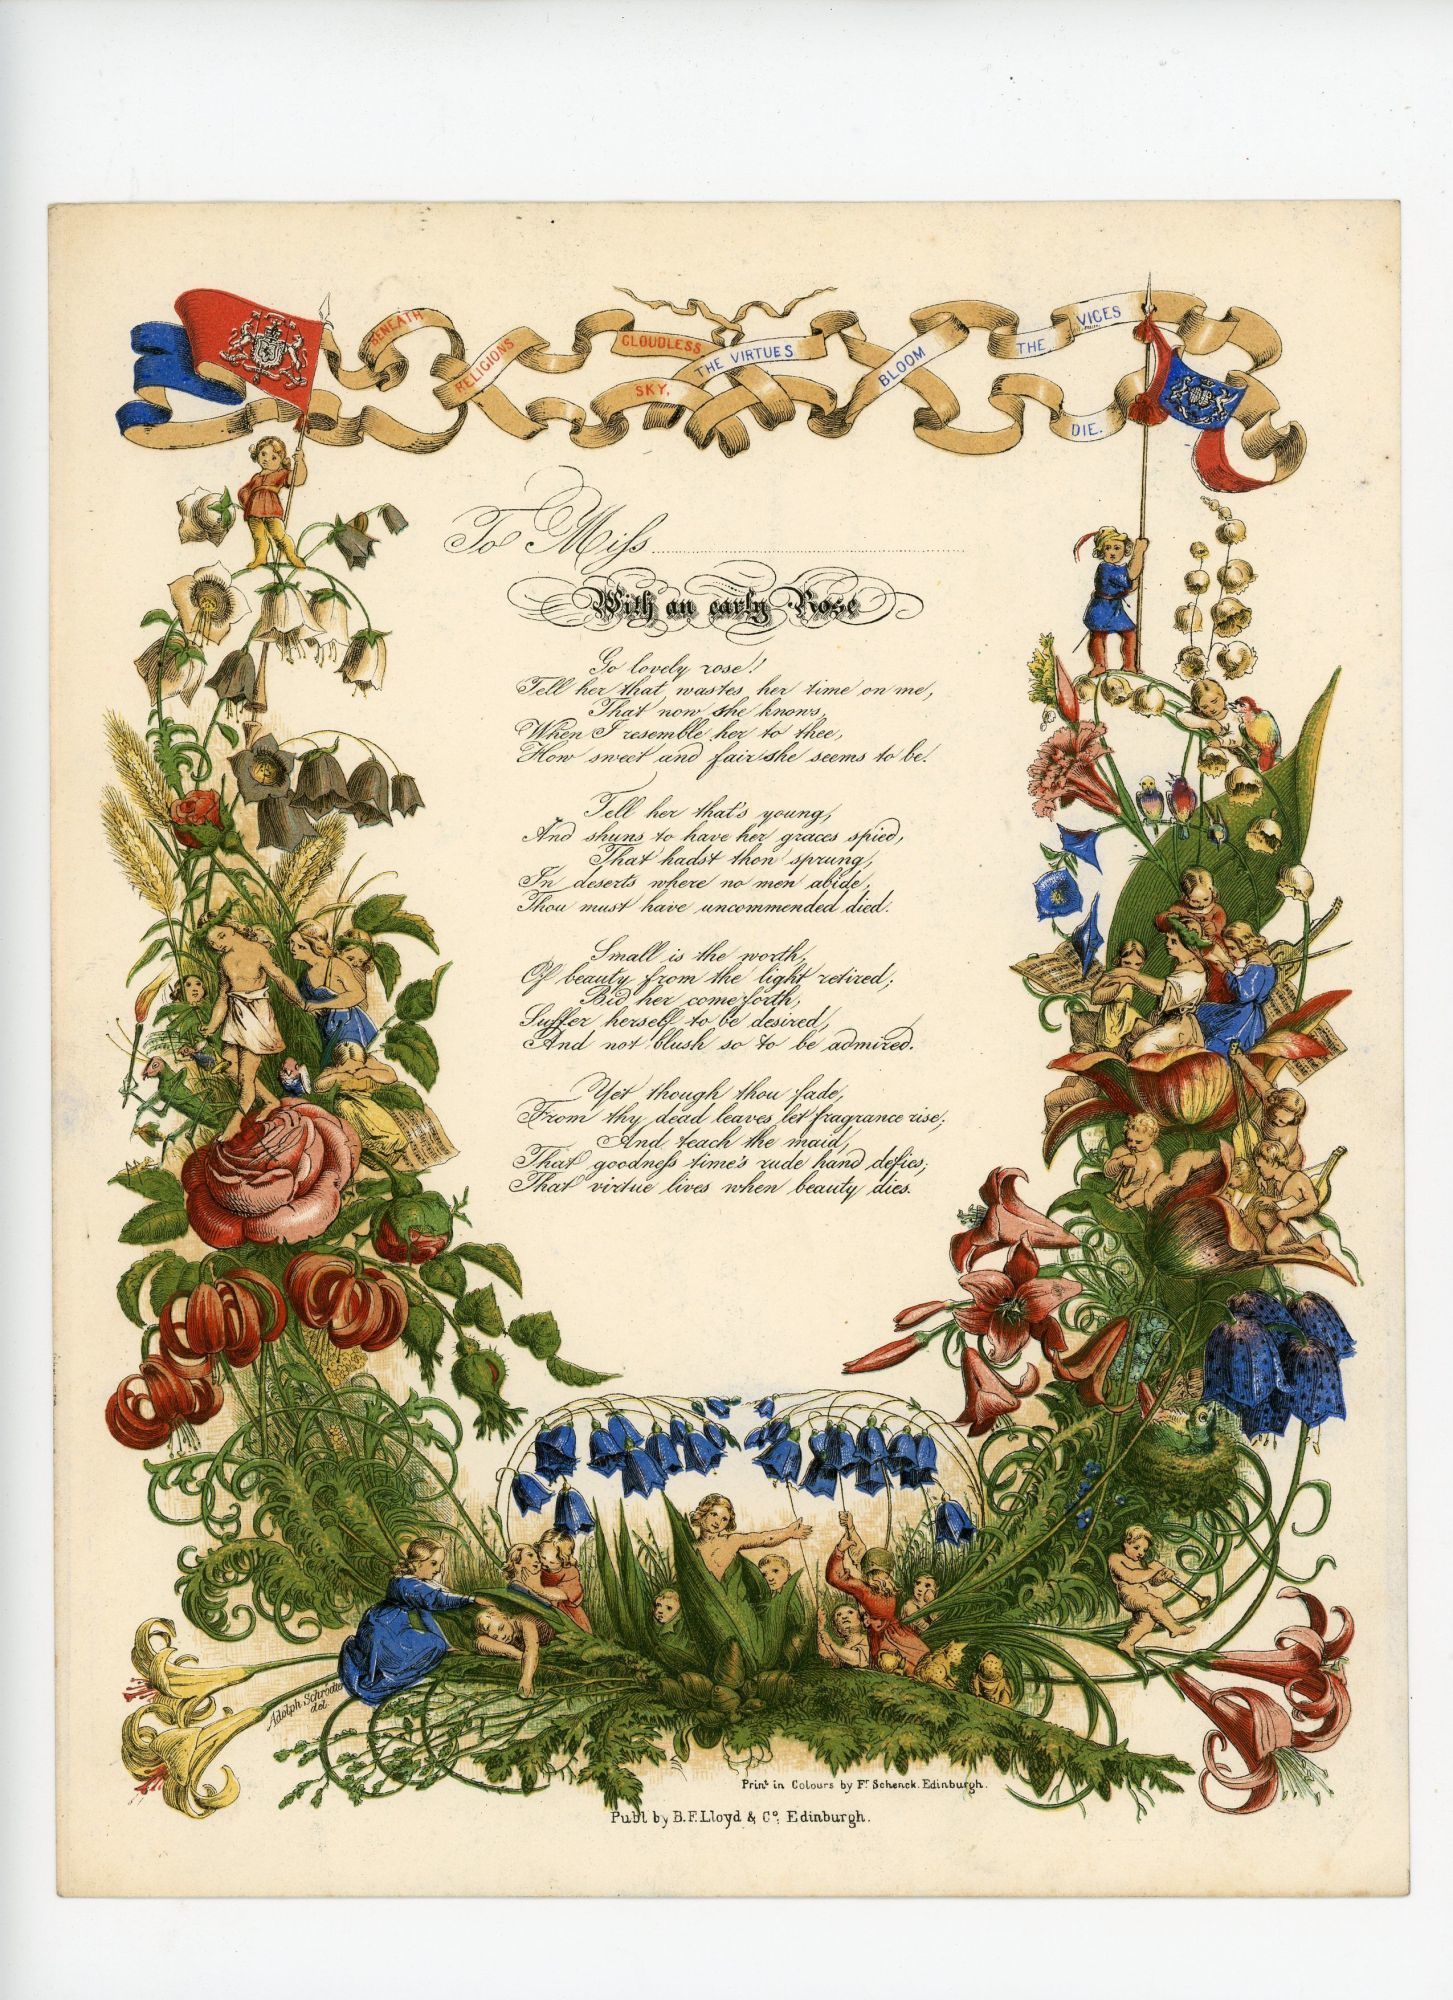 BENEATH RELIGIONS CLOUDLESS SKY, THE VIRTUES BLOOM THE VICES DIE.
To Miſs
With an early Rose
Go lovely rose!
Tell her that wastes her time on me,
That now she knows,
When I resemble her to thee,
How sweet and fair she seems to be.
Tell her that's young,
And shuns to have her graces spied,
That hadst thou sprung,
In deserts where no men abide,
Thou must have uncommended died.
Small is the worth,
Of beauty from the light retired;
Bid her come forth,
Suffer herself to be desired,
And not blush so to be admired.
Yet though thou fade,
From thy dead leaves let fragrance rise;
And teach the maid,
That goodneſs time's rude hand defies;
That virtue lives when beauty dies.
Adolph Schrödter
del
Print in Colours by Fr Schenck. Edinburgh.
Publ by B.F. Lloyd & Co; Edinburgh.